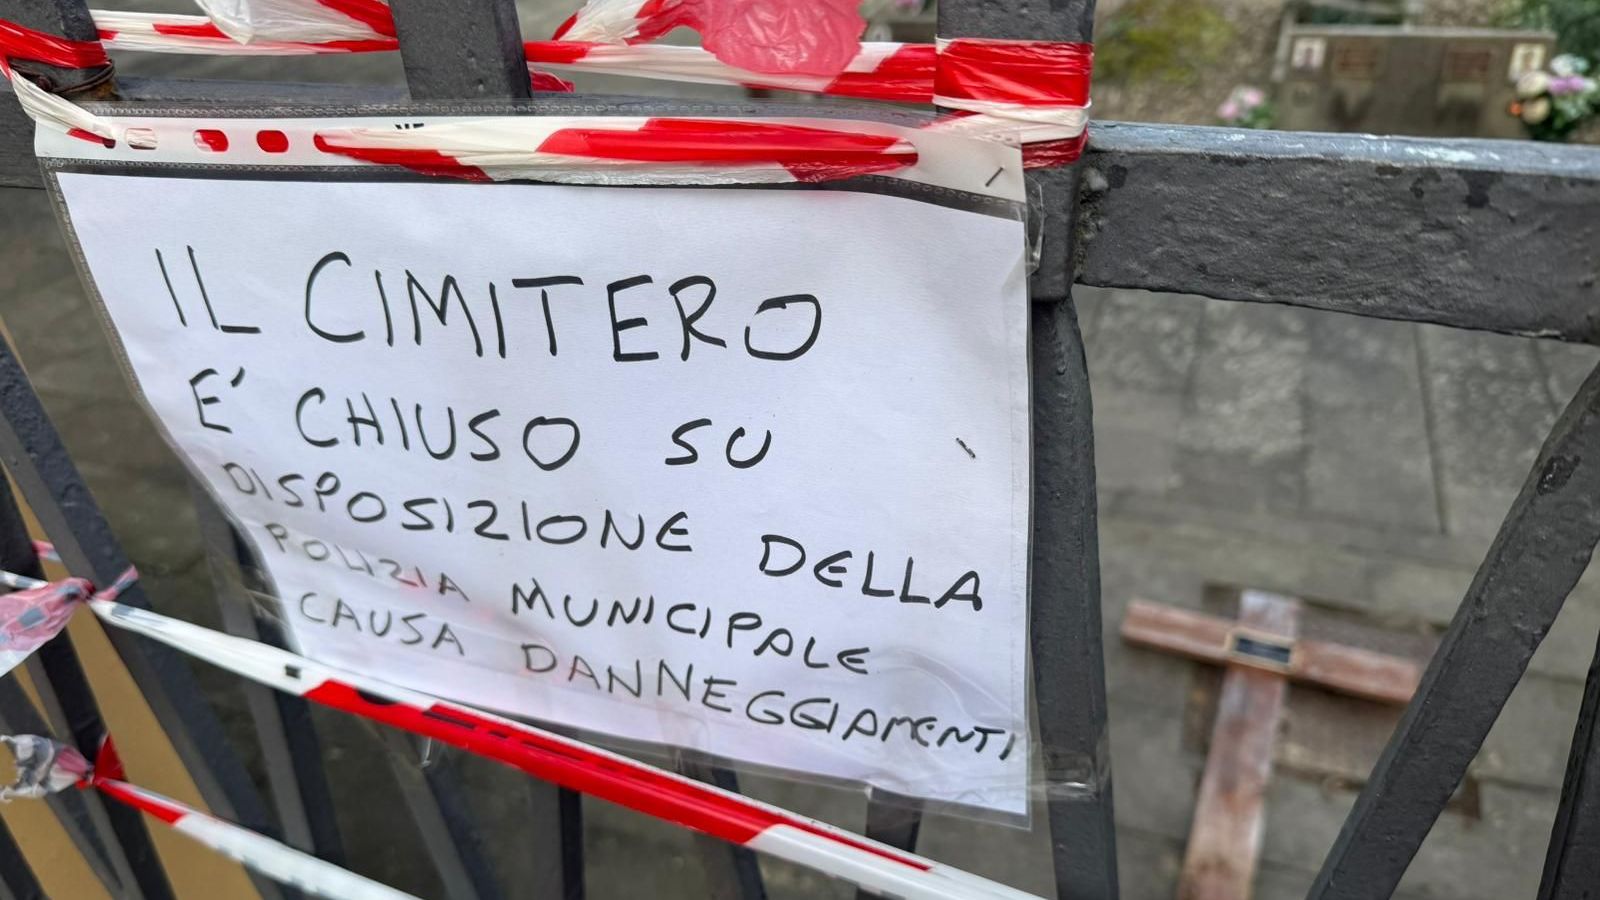 IL CIMITERO
E' CHIUSO SU
DISPOSIZIONE DELLA
POLIZIA MUNICIPALE
CAUSA DANNEGGIAMENTI